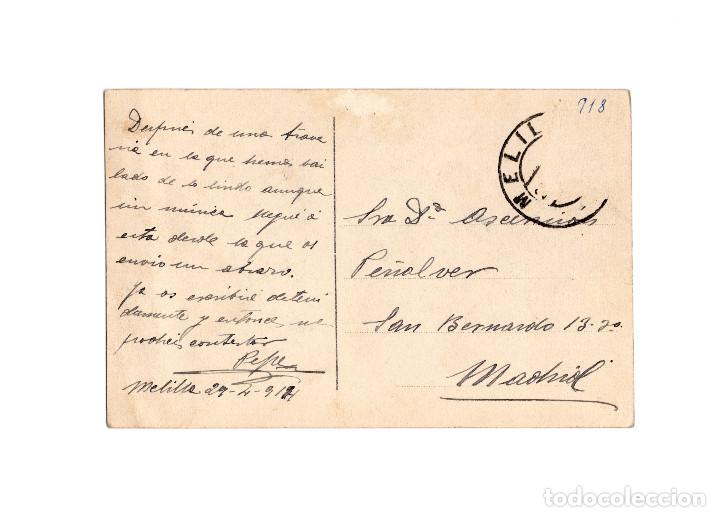 Después de una trave
sia en la que hemos bai
lado de lo lindo aunque
sin música llegué á
esta desde la que os
envio un abrazo.
Ya os escribiré deteni
damente y entonces me
podreis contestar
Pepe
Melilla 29-4-91
918
MELIL
Sra Dª Ascensión
Peñalver
San Bernardo 13-2º
Madrid
todocoleccion
todocoleccion.net